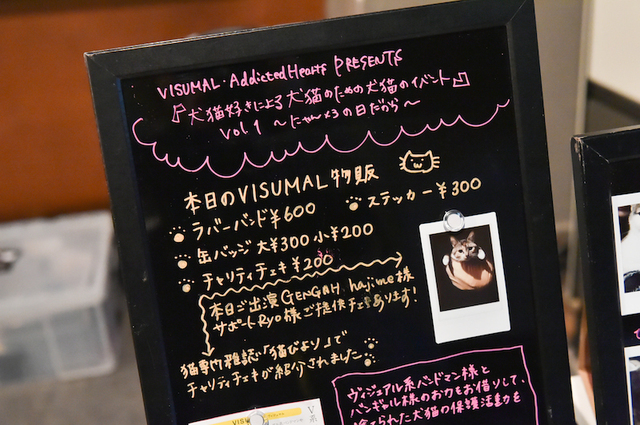 VISUMAL・AddictedHearts PRESENTS
『犬猫好きによる犬猫のための犬猫のイベント』
vol.1 〜にゃんメンの日だから〜
本日のVISUMAL物販
・ラバーバンド¥600
・ステッカー¥300
・缶バッジ 大¥300 小¥200
・チャリティチェキ ¥200
本日ご出演GENGAH.hajime様
サポートRyo様ご提供チェキあります!
猫専門雑誌「猫びより」で
チャリティチェキが紹介されました
ヴィジュアル系バンドマン様と
バンギャル様のお力をお借りして、
捨てられた犬猫の保護活動を
VISU